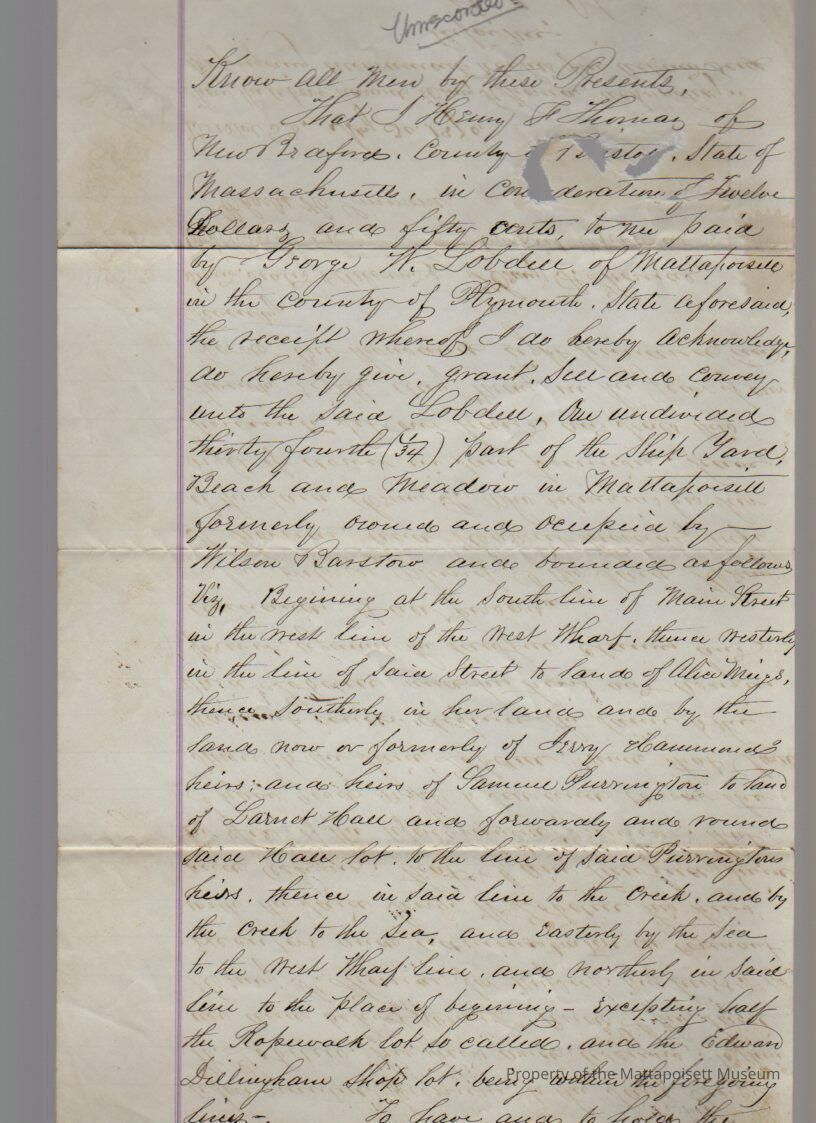 Unrecorded.
Know all Men by these Presents,
That I Henry F Thomas of
New Bedford. County Bristol, State of
Massachusetts, in consideration of Twelve
Dollars and fifty cents, to me paid
by George W. Lobdell of Mattapoisett
in the County of Plymouth. State aforesaid,
the receipt whereof I do hereby acknowledge,
do hereby give, grant, sell and convey
unto the said Lobdell, One undivided
thirty fourth (1/34) part of the Ship Yard,
Beach and Meadow in Mattapoisett
formerly owned and occupied by
Wilson Barstow and bounded as follows
Viz, Begining at the South line of Main Street
in the west line of the West Wharf, thence westerly
in the line of said Street to land of Alice Meigs,
thence southerly in her land and by the
land now or formerly of Jerry Hammonds
heirs; and heirs of Samuel Purrington to land
of Larnet Hall and forwardly and round
said Hall lot, to the line of said Purringtons
heirs, thence in said line to the Creek, and by
the Creek to the Sea, and Easterly by the Sea
to the West Wharf line, and northerly in said
line to the place of begining - excepting half
the Ropewalk lot so called, and the Edward
Dillingham Shop lot, being within the foregoing
lines -. To have and to hold the
Property of the Mattapoisett Museum